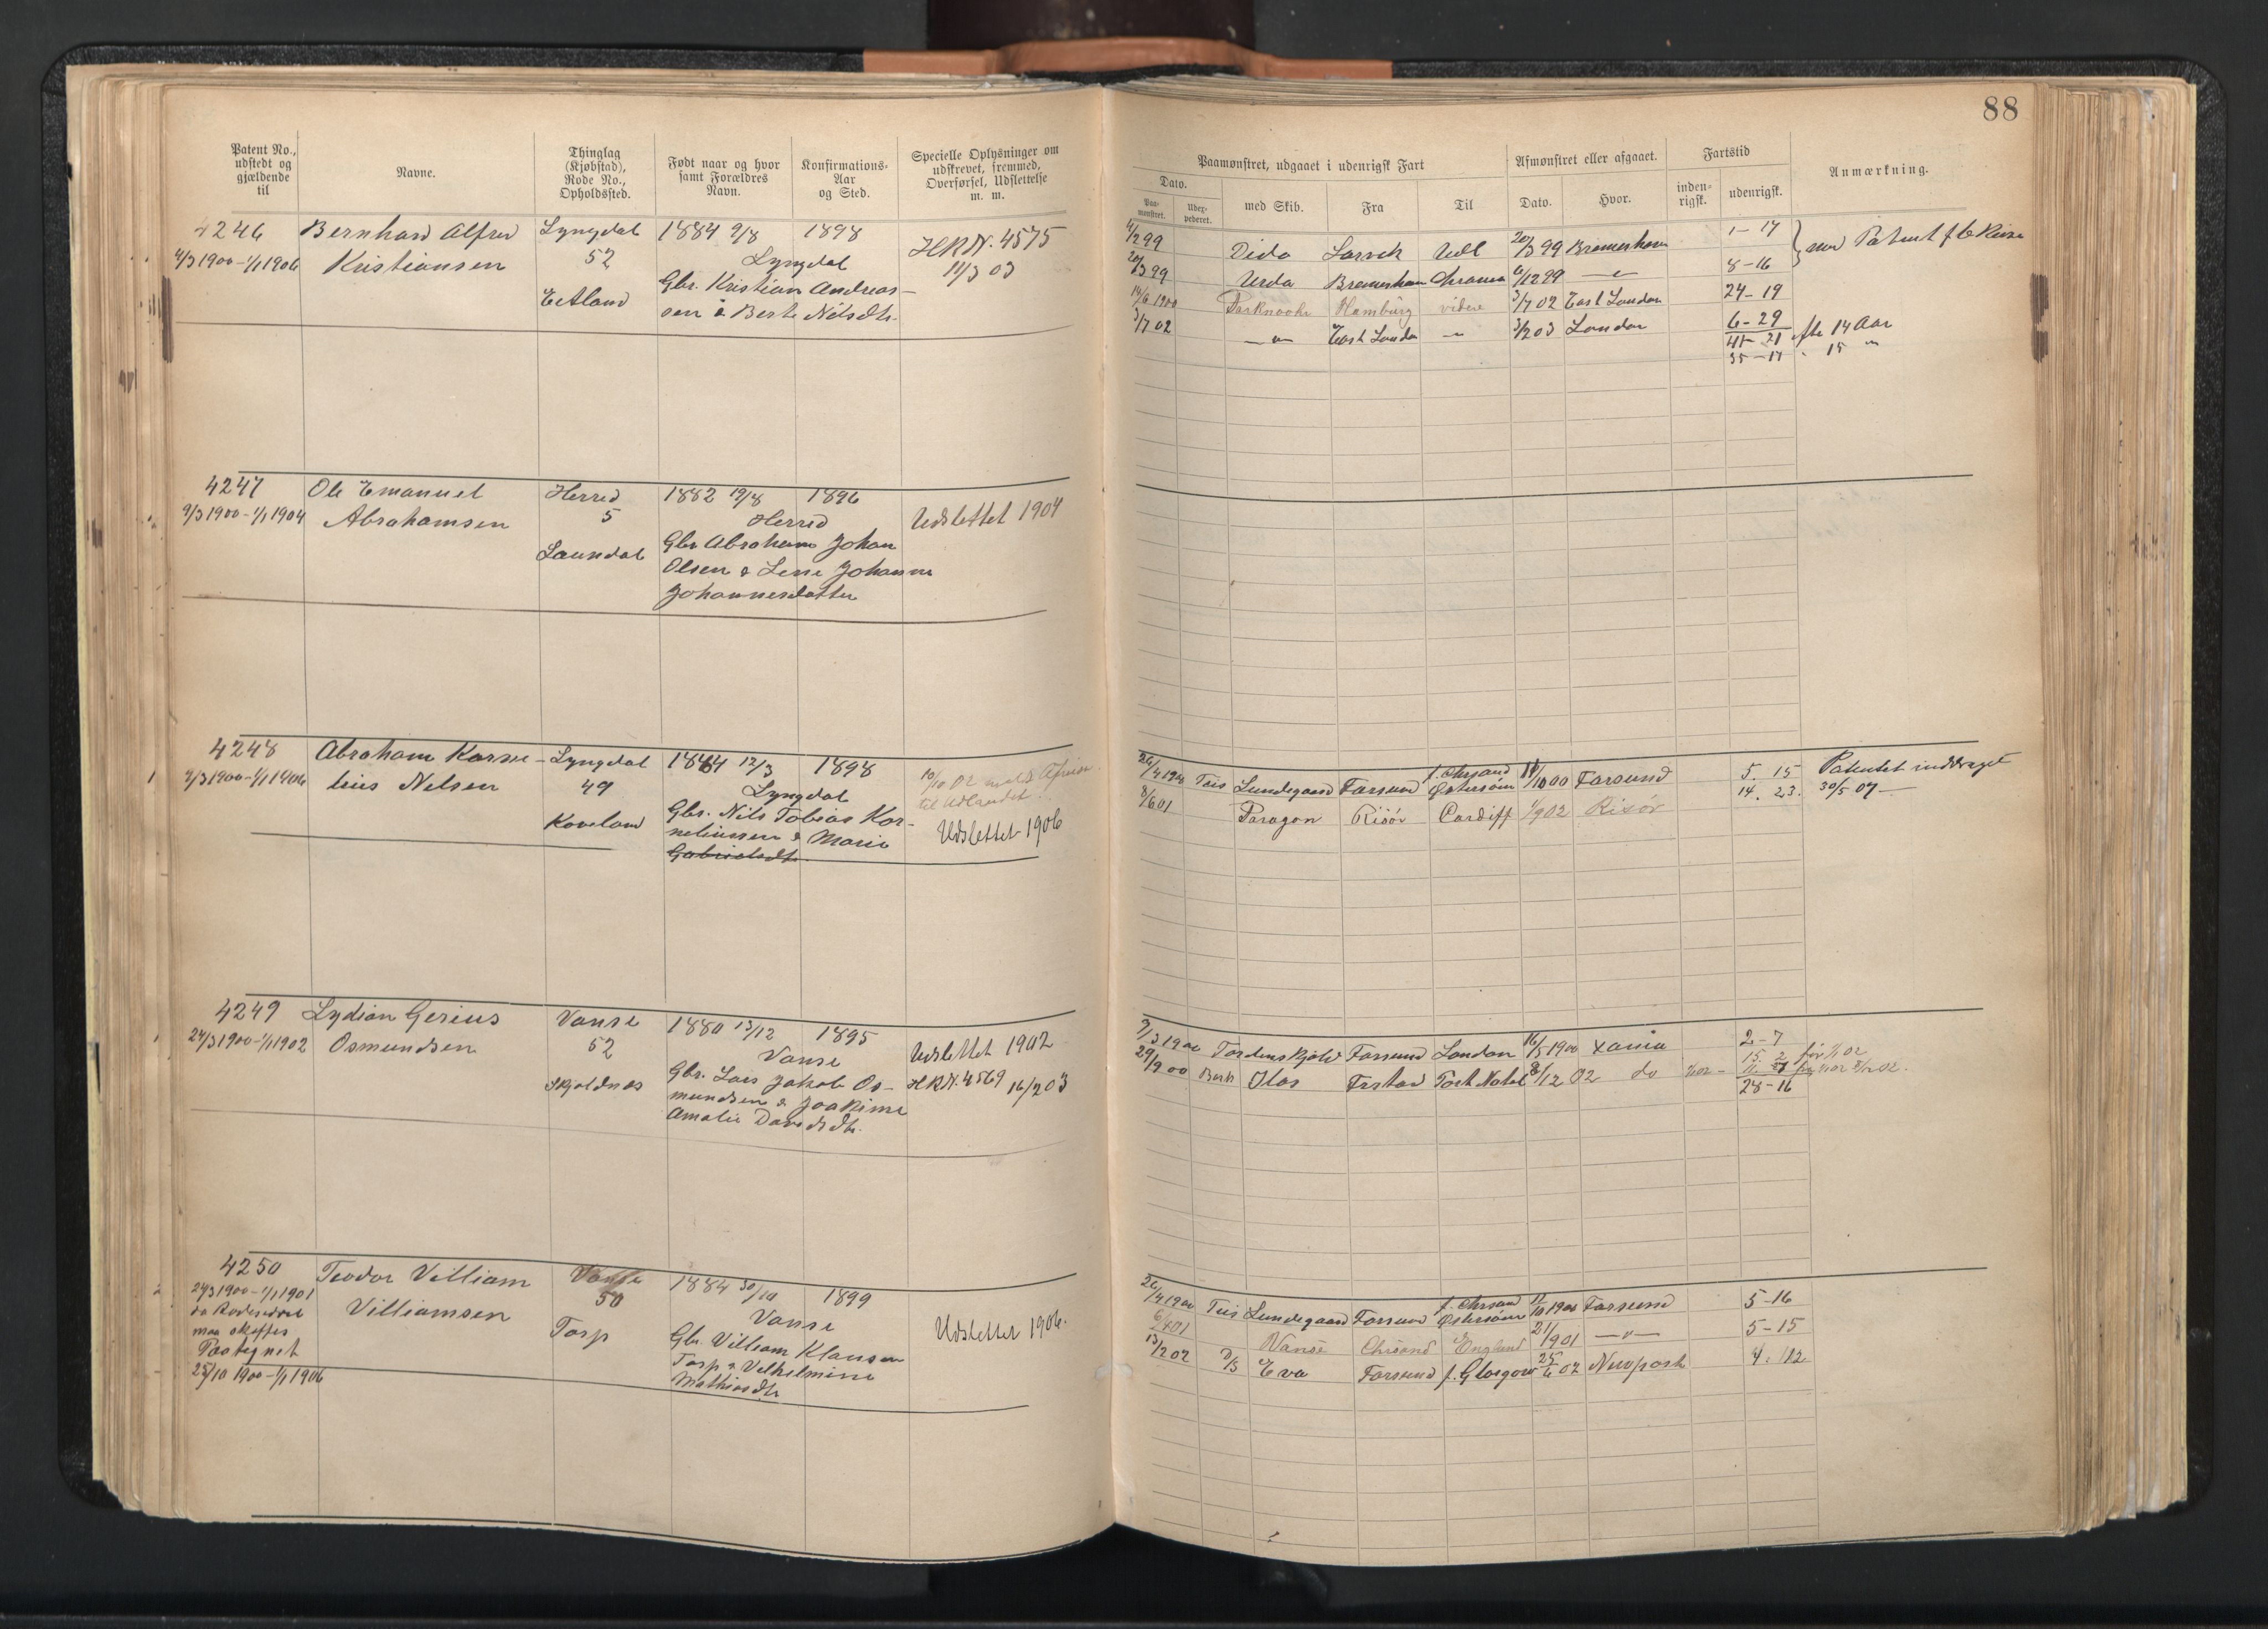 88
Patent No., udstedt og gjældende til
Navne.
Thinglag (Kjøbstad), Rode No., Opholdssted.
Født naar og hvor samt Forældres Navn.
Konfirmations-Aar og Sted.
Specielle Oplysninger om udskrevet, fremmed, Overførsel, Udslettelse m. m.
Paamønstret, udgaaet i udenrigsk Fart
Afmønstret eller afgaaet.
Fartstid
Anmærkning.
Dato.
Paa-mønstret.
Udex-pederet.
med Skib.
Fra
Til
Dato.
Hvor.
inden-rigsk.
udenrigsk.
4246 Bernhard Alfred Lyngdal 1884 9/8 1898 HRN. 4575
9/3 1900-1/1 1906 Kristiansen 52 Lyngdal 11/3 03
Gbr. Kristian Andreas-
Etland sen & Berte Nilsdtr.
4/2 99 Dida Larvik Udl 20/3 99 Bremerhavn 1-17
20/3 99 Urda Bremerhavn 6/12 99 — " — 8-16
14/6 1900 Hamburg videre 3/7 02 East London 24-19
3/7 02 — " — East London — " — 3/2 03 London 6-29
41-21 efte 14 Aar
35-17 " 15 "
4247 Ole Emanuel Herred 1882 19/8 1896
9/3 1900-1/1 1904 Abrahamsen 5 Herred Udslettet 1904
Laundal Gbr Abraham Johan
Olsen & Lene Johanne
Johannesdatter
4248 Abraham Korne- Lyngdal 1884 12/3 1898
9/3 1900-1/1 1906 lius Nelsen 49 Lyngdal til Udlandet.
Gbr. Nils Tobias Kor-
Koveland neliussen & Marie Udslettet 1906
Gabrielsdtr.
26/4 1900 Teis Lundegaard Farsund f. Chrsand Østersøen 11/10 00 Farsund 5. 15 Patentet inddraget
8/6 01 Paragon Risør Cardiff 1/9 02 Risør 14. 23. 30/5 07 —
4249 Lydian Gerius Vanse 1880 13/12 1895
24/3 1900-1/1 1902 Osmundsen 52 Vanse Udslettet 1902
Skjoldnes Gbr. Lars Jakob Os- HRN. 4569 16/2 03
mundsen & Joakime
Amalie Davidsdtr.
7/3 1900 Tordenskjold Farsund London 16/5 1900 Xania 2-7
29/9 00 Bark Ilos Frstad Port Natal 8/12 02 do
28-16
4250 Teodor Villiam Vanse 1884 30/10 1899
24/3 1900-1/1 1901 Villiamsen 50 Vanse
maa skaffes Torp Gbr. Villiam Klausen Udslettet 1906.
Paategnet Torp & Vilhelmine
25/10 1900-1/1 1906 Mathiasdtr
26/4 1900 Teis Lundegaard Farsund f. Chrsand Østersøen 11/10 1900 Farsund 5-16
Vanse Chrsand England 21/9 01 — " — 5-15
13/2 02 D/S Eva Farsund f. Glasgow 25/6 02 Newport 4. 12